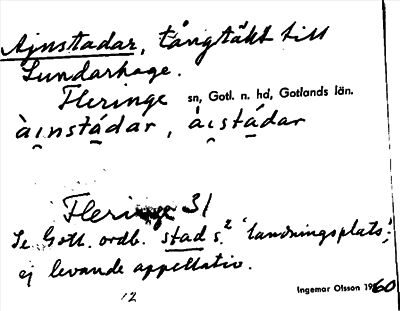 Ajnstadar, tångtäkt till
Sundarhage.
Fleringe sn, Gotl. n. hd, Gotlands län.
àı̯nstá̱dar, àı̯stá̱dar
Fleringe 31
Se Gotl. ordb. stad s.² 'landningsplats',
ej levande appellativ.
12
Ingemar Olsson 1960